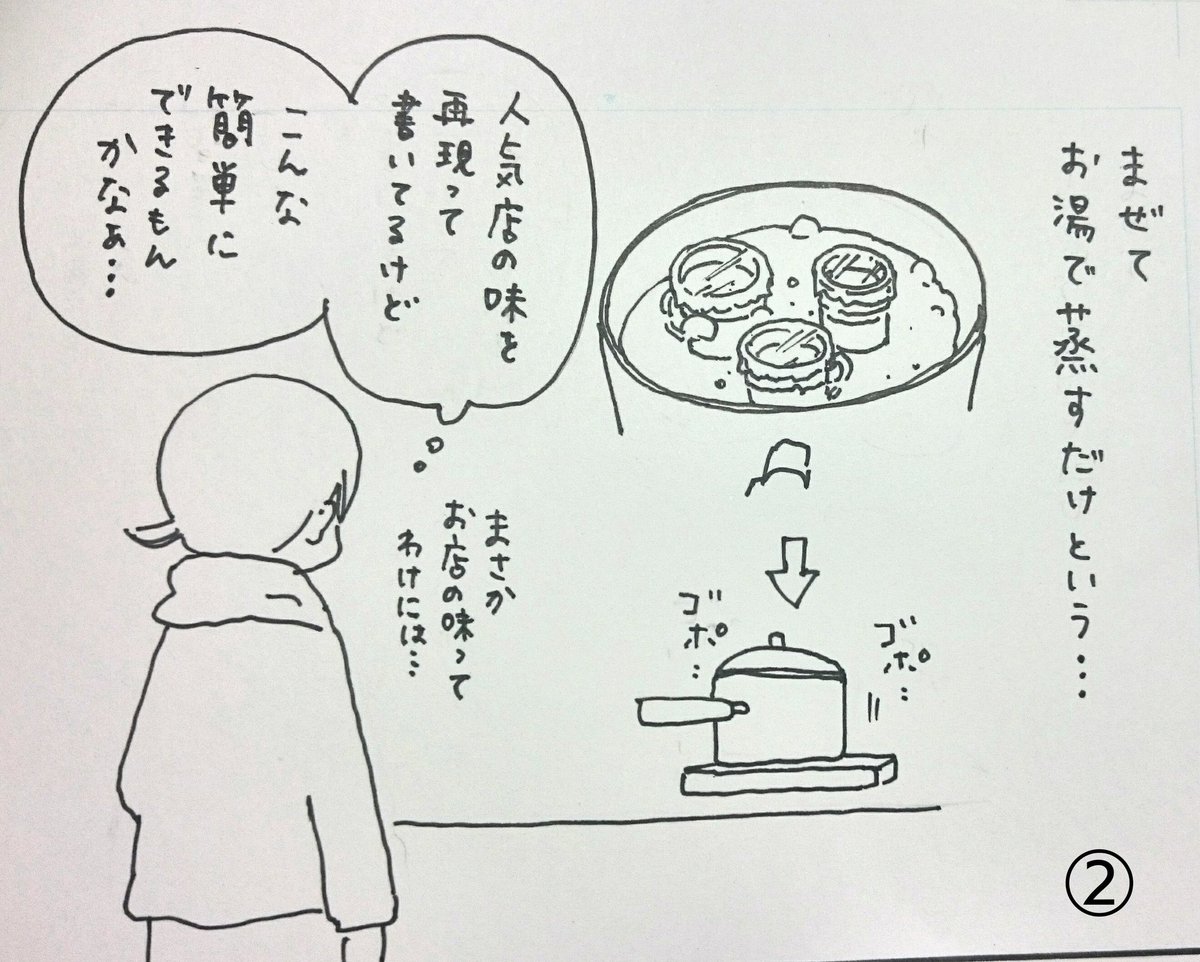 まぜて
お湯で蒸すだけという・・・
人気店の味を
再現って
書いてるけど
こんな
簡単に
できるもん
かなぁ・・・
まさか
お店の味って
わけには…
ゴポ‥
ゴポ‥
②